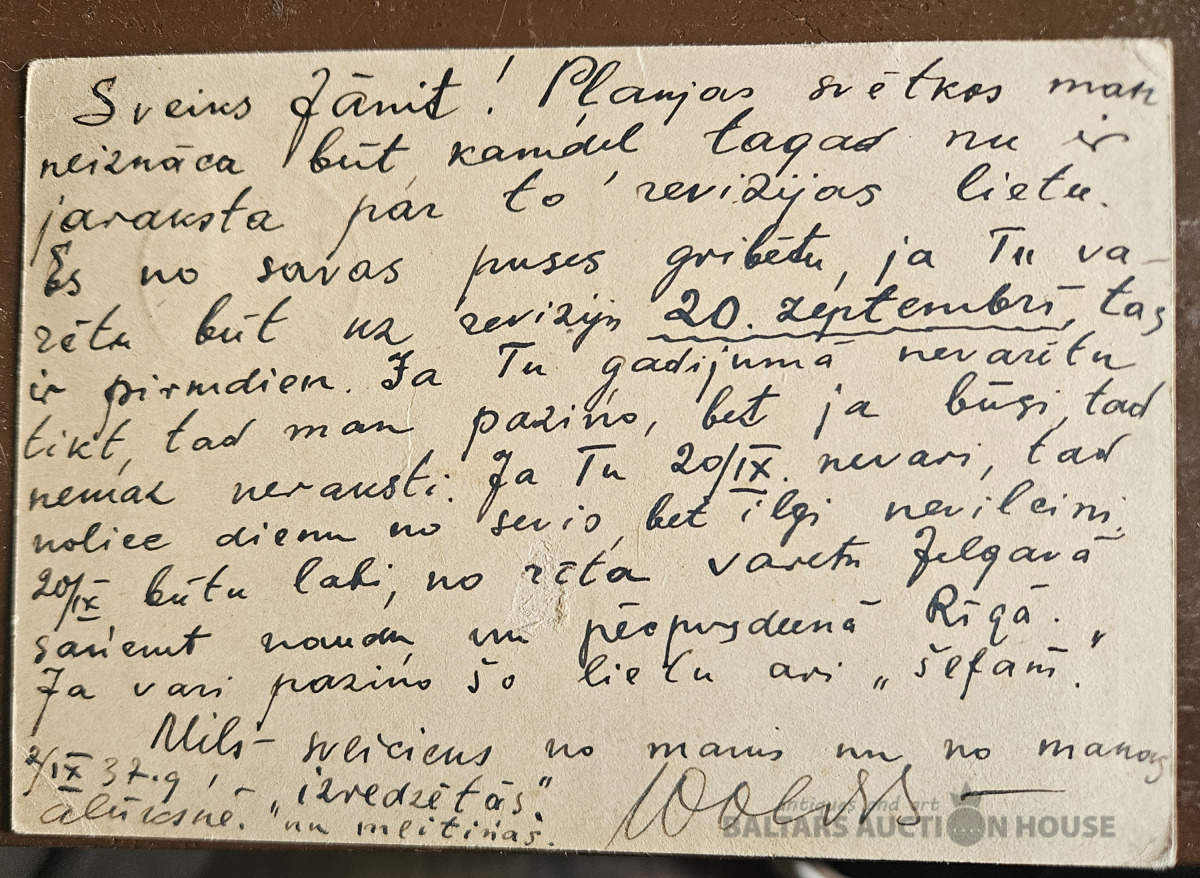 Sveiks Jānīt! Pļaujas svētkos man
neiznāca būt, kamdēl tagad nu ir
jaraksta par to revizijas lietu.
Es no savas puses gribētu, ja Tu va-
rētu būt uz reviziju 20. zeptembrī, tas
ir pirmdien. Ja Tu gadijumā nevarētu
tikt, tad man paziņo, bet ja būsi, tad
nemaz neraksti. Ja Tu 20/IX. nevari, tad
noliec dienu no sevis, bet ilgi nevilcini.
20/IX būtu labi, no rīta varētu Jelgavā
saņemt naudu un pēcpusdienā Rīgā.
Ja vari paziņo šo lietu ari „šefam".
Mīļš sveiciens no manis un no manas
IX 37.g. „izredzētās"
Alūksnē. un meitiņas.
antiques and art
BALTARS AUCTION HOUSE